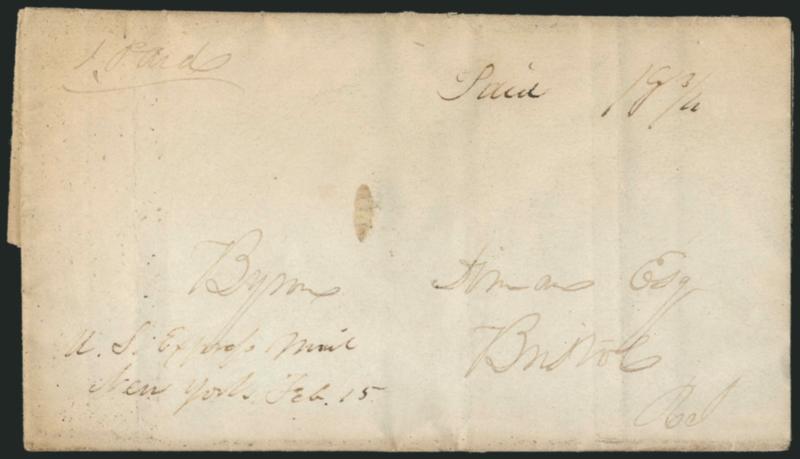 Paid
Paid 18 3/4
Byron Diman Esq
Bristol
R I
U. S. Express Mail
New York Feb. 15